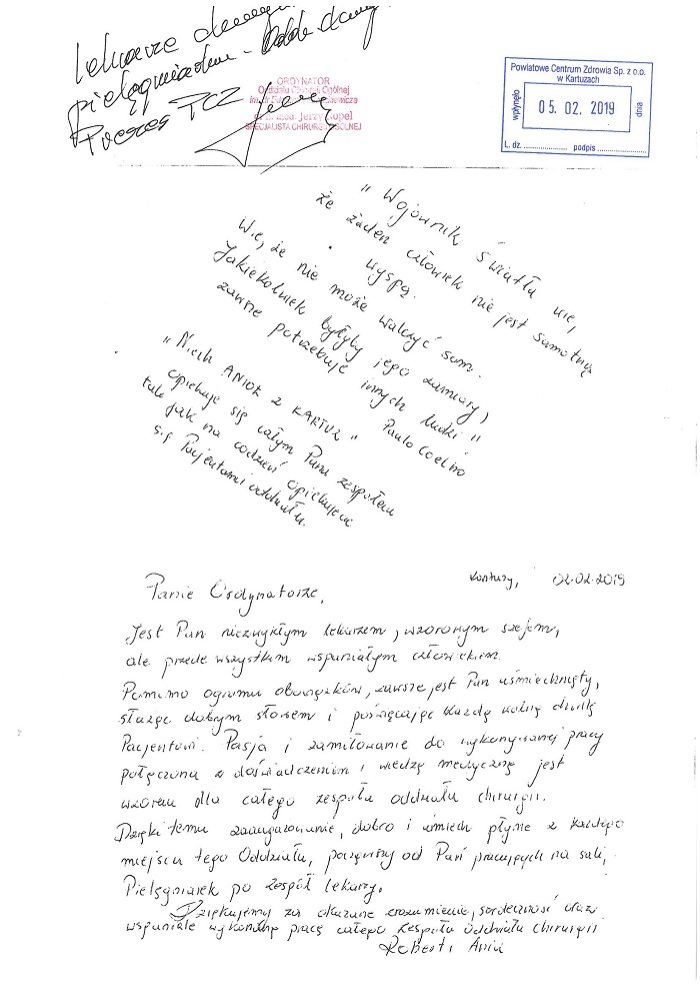 lekarze
pielęgniarki -
Prezes PCZ
ORDYNATOR
Oddziału Chirurgii Ogólnej
im.
med. Jerzy
SPECJALISTA CHIRURG OGÓLNEJ
Powiatowe Centrum Zdrowia Sp. z o.o.
w Kartuzach
wpłynęło 05. 02. 2019 dnia
L. dz. podpis
" Wojownik światła wie,
że żaden człowiek nie jest samotną
wyspą.
Wie, że nie może walczyć sam.
Jakiekolwiek byłyby jego zamiary,
zawsze potrzebuje innych ludzi "
Paulo Coelho
" Niech ANIOŁ z KARTUZ "
opiekuje się całym Panu zespołem
tak jak na codzień opiekujecie
się Pacjentami oddziału.
Kartuzy, 02.02.2019
Panie Ordynatorze,
Jest Pan niezwykłym lekarzem, wzorowym szefem,
ale przede wszystkim wspaniałym człowiekiem.
Pomimo ogromu obowiązków, zawsze jest Pan uśmiechnięty,
służąc dobrym słowem i poświęcając każdą wolną chwilę
Pacjentowi. Pasja i zamiłowanie do wykonywanej pracy
połączona z doświadczeniem i wiedzą medyczną jest
wzorem dla całego zespołu oddziału chirurgii.
Dzięki temu zaangażowanie, dobro i uśmiech płynie z każdego
miejsca tego Oddziału, począwszy od Pań pracujących na sali,
Pielęgniarek po zespół lekarzy.
Dziękujemy za okazane zrozumienie, serdeczność oraz
wspaniale wykonaną pracę całego zespołu oddziału chirurgii
Robert i Ania